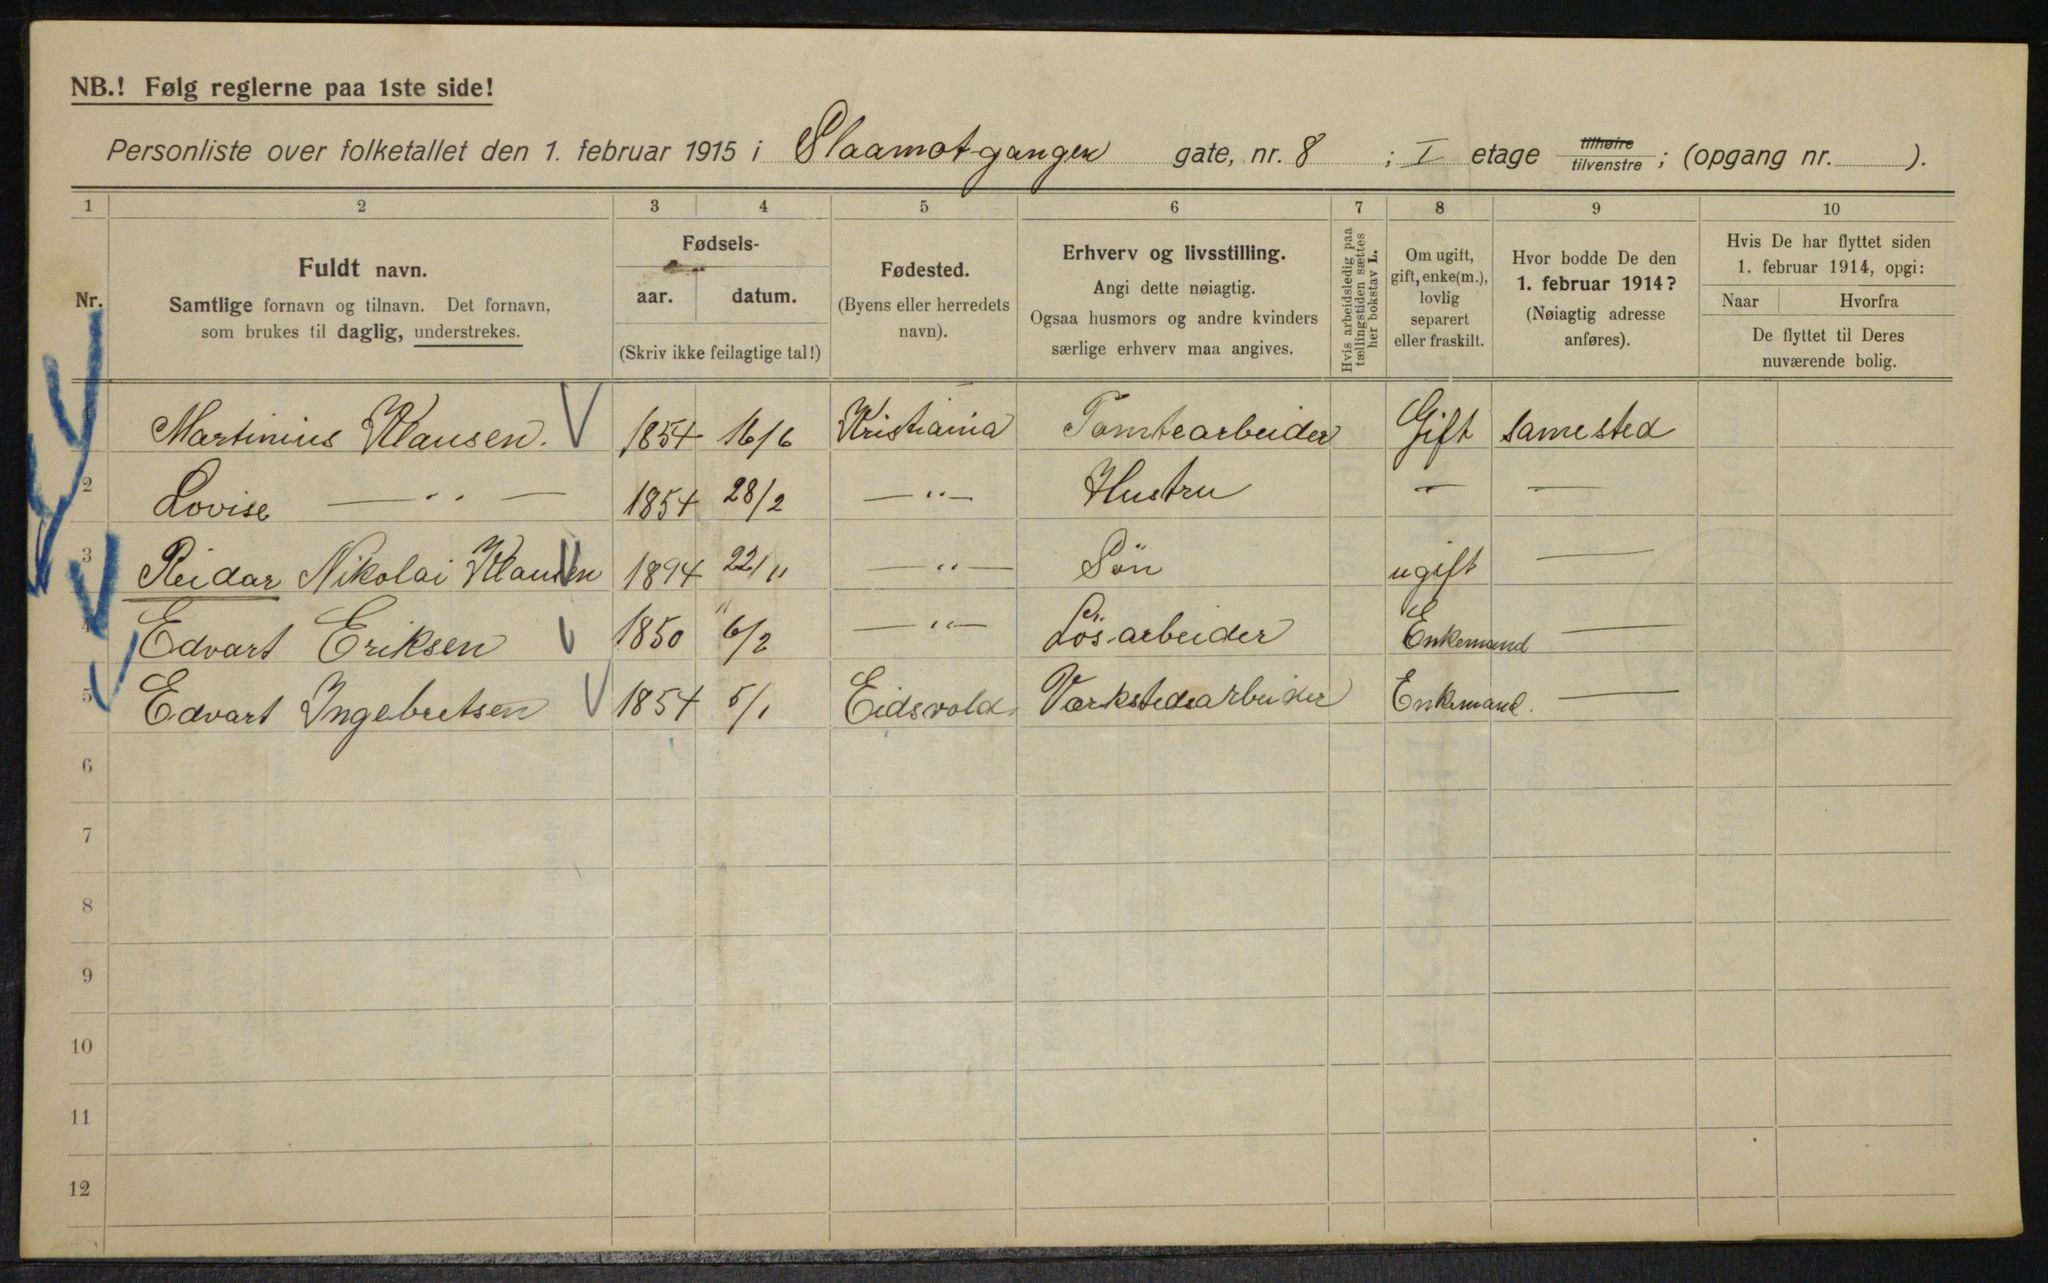 NB.! Følg reglerne paa 1ste side!
Personliste over folketallet den 1. februar 1915 i Slaamotgangen gate, nr. 8 ; I etage tilhøire tilvenstre ; (opgang nr. ).
1 2 3 4 5 6 7 8 9 10
Nr.
Fuldt navn.
Samtlige fornavn og tilnavn. Det fornavn,
som brukes til daglig, understrekes.
Fødsels-
aar. datum.
(Skriv ikke feilagtige tal!)
Fødested.
(Byens eller herredets
navn).
Erhverv og livsstilling.
Angi dette nøiagtig.
Ogsaa husmors og andre kvinders
særlige erhverv maa angives.
Hvis arbeidsledig paa
tællingstiden sættes
her bokstav L.
Om ugift,
gift, enke(m.),
lovlig
separert
eller fraskilt.
Hvor bodde De den
1. februar 1914?
(Nøiagtig adresse
anføres).
Hvis De har flyttet siden
1. februar 1914, opgi:
Naar Hvorfra
De flyttet til Deres
nuværende bolig.
1 Martinius Klausen. 1854 16/6 Kristiania Tomtearbeider Gift samested
2 Lovise — " — 1854 28/2 — " — Hustru — —
3 Reidar Nikolai Klausen 1894 22/11 — " — Søn ugift —
4 Edvart Eriksen 1850 6/2 — " — Løsarbeider Enkemand —
5 Edvart Ingebretsen 1854 5/1 Eidsvold Værkstedsarbeider Enkemand. —
6
7
8
9
10
11
12